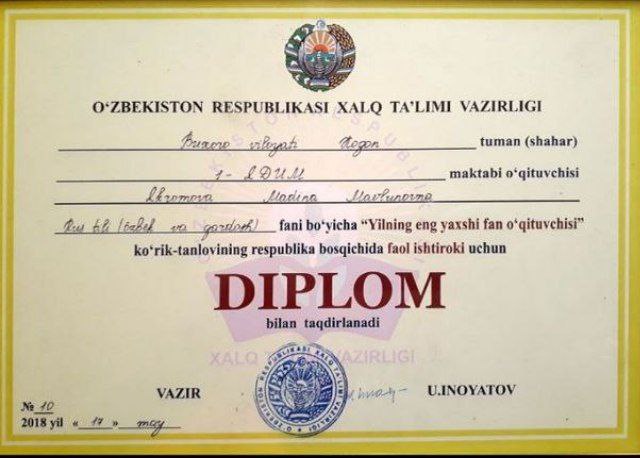 O‘ZBEKISTON RESPUBLIKASI XALQ TA’LIMI VAZIRLIGI
Buxoro viloyati Kogon tuman (shahar)
1- IDUM maktabi o‘qituvchisi
Ikromova Madina Mavlunovna
Rus tili (o‘zbek va qardosh) fani bo‘yicha “Yilning eng yaxshi fan o‘qituvchisi”
ko‘rik-tanlovining respublika bosqichida faol ishtiroki uchun
DIPLOM
bilan taqdirlanadi
XALQ VAZIRLIGI
VAZIR U.INOYATOV
№ 10
2018 yil « 17 » may